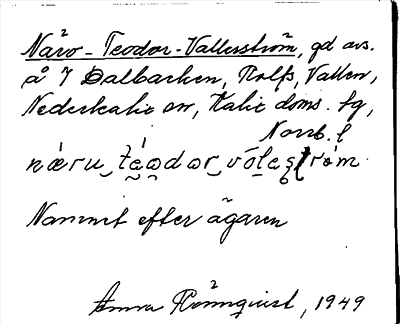 Näro-Teodor-Vallerström, gd avs.
å 7 Dalbacken, Rolfs, Vallen,
Nederkalix sn, Kalix doms. fg,
Norrb. l
næru_teodor_volestrøm
Namnet efter ägaren
Anna Rönnquist, 1949